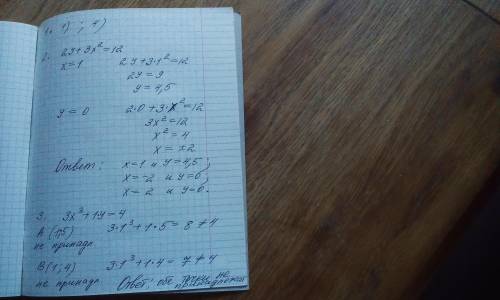 1. 1) ; 4)
2. 2y+3x²=12
x=1 2y+3·1²=12
2y=9
y=4,5
y=0 2·0+3·x²=12
3x²=12
x²=4
x=±2
Ответ: x=1 и y=4,5
x=-2 и y=0
x=2 и y=0.
3. 3x³+1y=4
A (1;5) 3·1³+1·5=8≠4
не принадл.
B(1;4) 3·1³+1·4=7≠4
не принадл. Ответ: обе точки не принадлежат